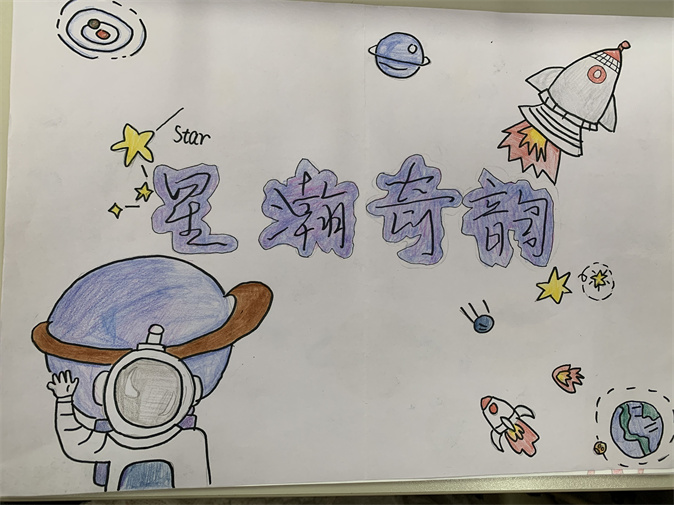 Star
星潮奇韵